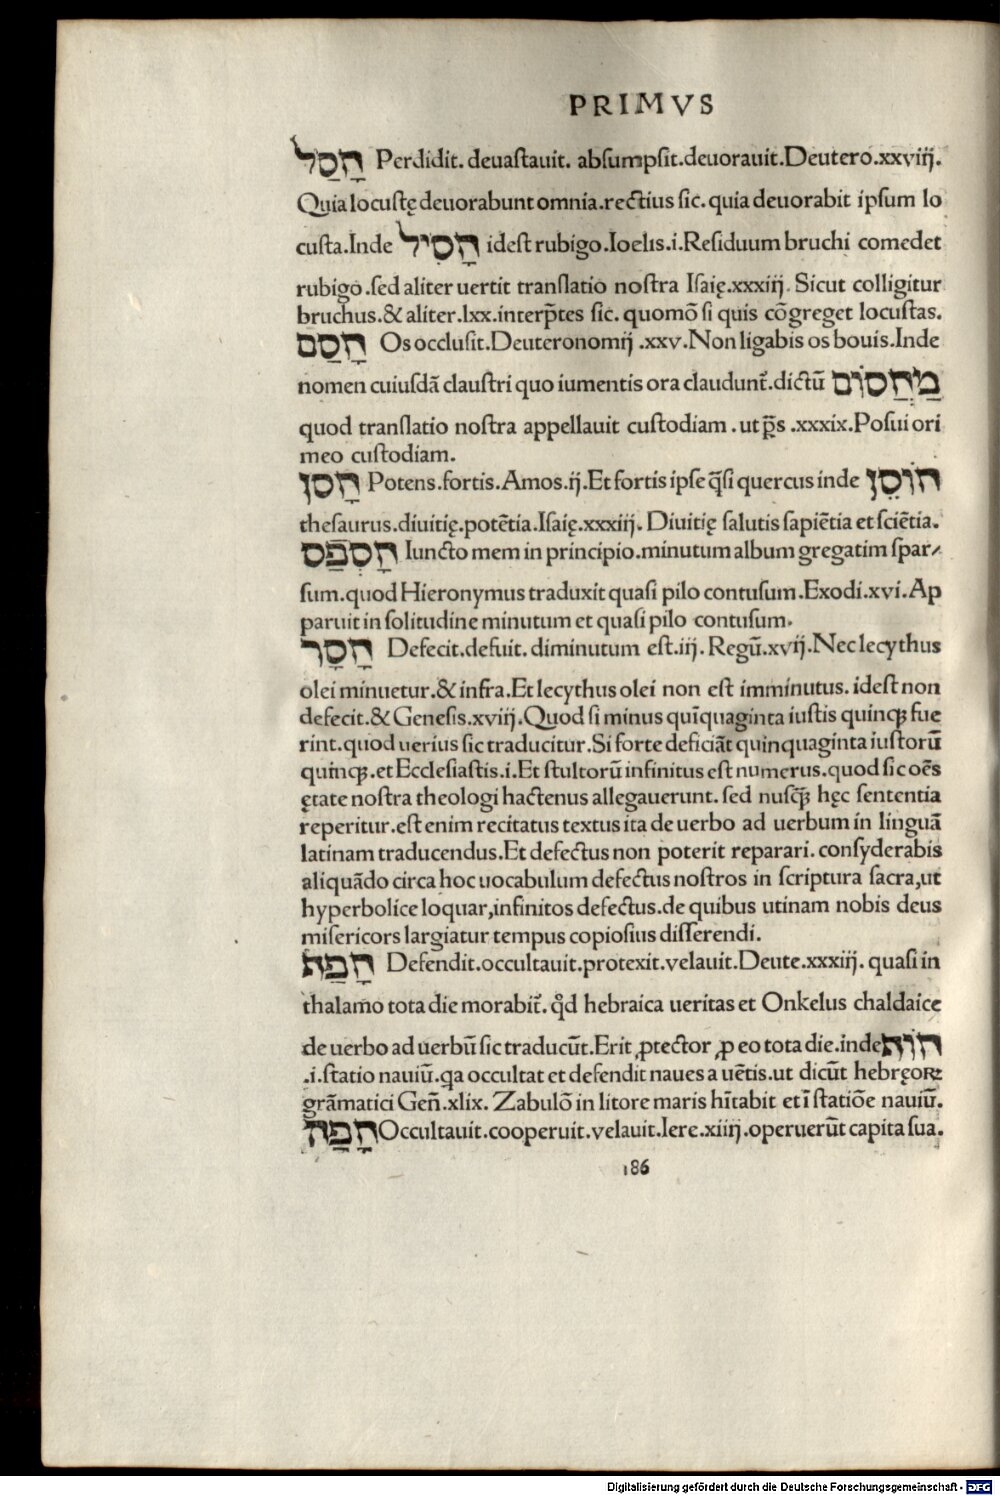 PRIMVS
חָסַל Perdidit. deuastauit. absumpsit.deuorauit.Deutero.xxviij.
Quia locustę deuorabunt omnia.rectius sic. quia deuorabit ipsum lo
custa.Inde חָסִיל idest rubigo.Ioelis.i.Residuum bruchi comedet
rubigo.sed aliter uertit translatio nostra Isaię.xxxiij. Sicut colligitur
bruchus.& aliter.lxx.interp̄tes sic. quomō si quis cōgreget locustas.
חָסַם Os occlusit.Deuteronomij .xxv.Non ligabis os bouis.Inde
nomen cuiusdā claustri quo iumentis ora claudunt᷑.dictū מַחֲסוֹם
quod translatio nostra appellauit custodiam .ut p̄s .xxxix.Posui ori
meo custodiam.
חָסַן Potens.fortis.Amos.ij.Et fortis ipse q̄si quercus inde חוֹסֶן
thesaurus.diuitię.potētia.Isaię.xxxiij. Diuitię salutis sapiētia et sciētia.
חָסְפַּס Iuncto mem in principio.minutum album gregatim spar⸗
sum.quod Hieronymus traduxit quasi pilo contusum.Exodi.xvi.Ap
paruit in solitudine minutum et quasi pilo contusum.
חָסָר Defecit.defuit. diminutum est.iij. Regū.xvij.Nec lecythus
olei minuetur.& infra.Et lecythus olei non est imminutus. idest non
defecit.& Genesis.xviij.Quod si minus quīquaginta iustis quinqꝫ fue
rint.quod uerius sic traducitur.Si forte deficiāt quinquaginta iustorū
quinqꝫ.et Ecclesiastis.i.Et stultorū infinitus est numerus.quod sic oēs
ętate nostra theologi hactenus allegauerunt. sed nusq̄ꝫ hęc sententia
reperitur.est enim recitatus textus ita de uerbo ad uerbum in linguā
latinam traducendus.Et defectus non poterit reparari. consyderabis
aliquādo circa hoc uocabulum defectus nostros in scriptura sacra,ut
hyperbolice loquar,infinitos defectus.de quibus utinam nobis deus
misericors largiatur tempus copiosius disserendi.
חָפַף Defendit.occultauit.protexit.velauit.Deute.xxxiij. quasi in
thalamo tota die morabit᷑. qd̄ hebraica ueritas et Onkelus chaldaice
de uerbo ad uerbū sic traducūt.Erit ꝓtector ꝓ eo tota die.inde חוֹף
.i.statio nauiū.qa occultat et defendit naues a uētis.ut dicūt hebręoꝝ
grāmatici Geñ.xlix. Zabulō in litore maris hītabit et ī statiōe nauiū.
חָפָה Occultauit.cooperuit.velauit.Iere.xiiij.operuerūt capita sua.
186
Digitalisierung gefördert durch die Deutsche Forschungsgemeinschaft - DFG